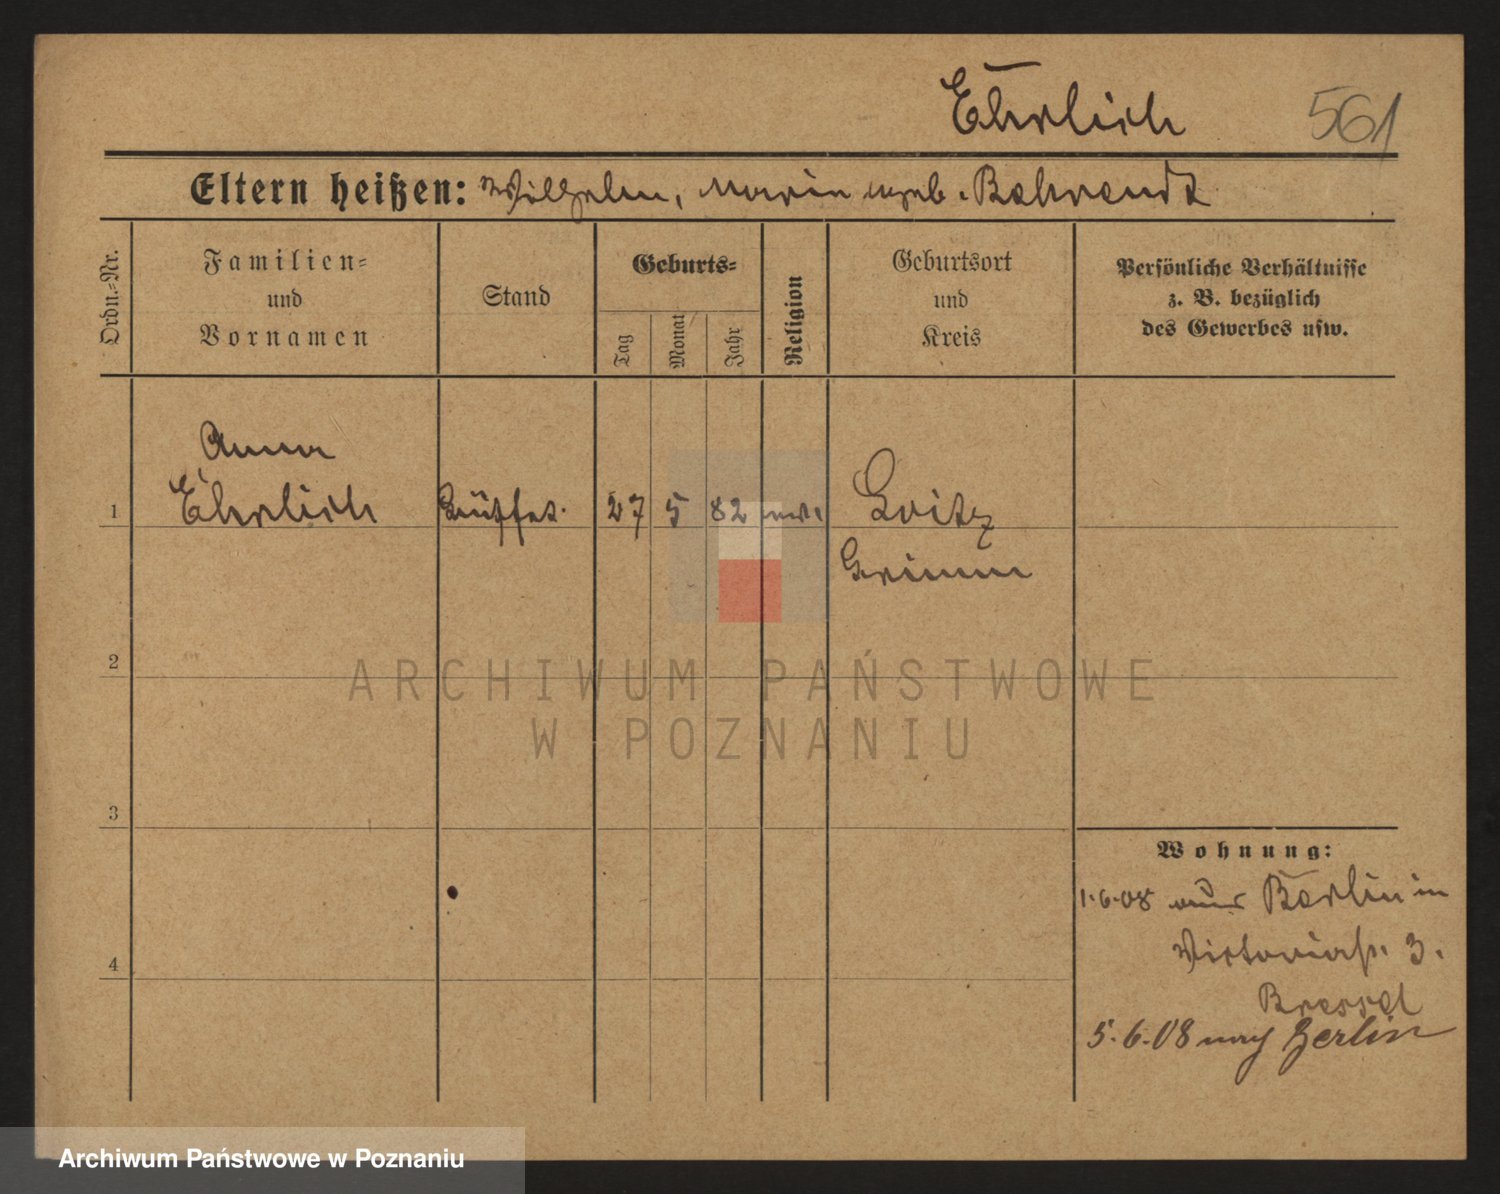 Ehrlich 561
Eltern heißen: Wilhelm, Marie geb. Behrendt
Ordn.-Nr.
Familien-
und
Vornamen
Stand
Geburts-
Tag
Monat
Jahr
Religion
Geburtsort
und
Kreis
Persönliche Verhältnisse
z. B. bezüglich
des Gewerbes usw.
Anna
1 Ehrlich Büffet. 27 5 82 ev. Loitz
Grimm
2
ARCHIWUM PAŃSTWOWE
W POZNANIU
3
Wohnung:
1.6.08 aus Berlin in
Victoriastr. 3.
4
Bressel
5.6.08 nach Berlin
Archiwum Państwowe w Poznaniu